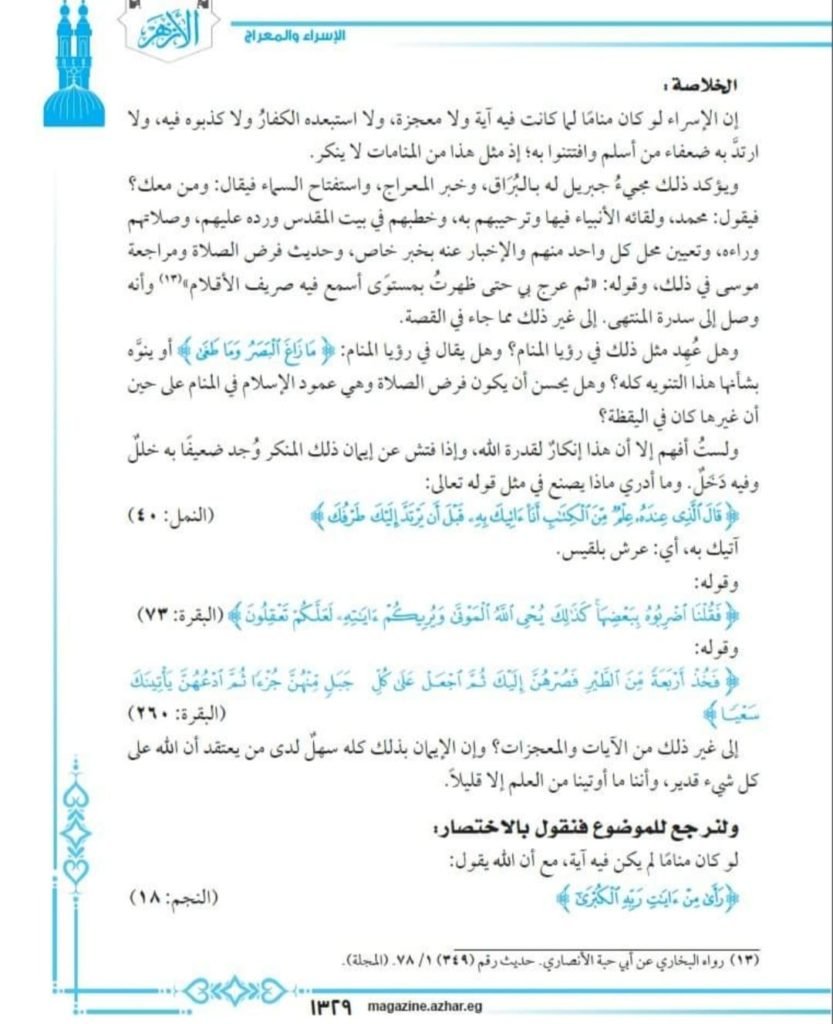 الأزهر
الإسراء والمعراج
الخلاصة:
إن الإسراء لو كان منامًا لما كانت فيه آية ولا معجزة، ولا استبعده الكفارُ ولا كذبوه فيه، ولا
ارتدَّ به ضعفاء من أسلم وافتتنوا به؛ إذ مثل هذا من المنامات لا ينكر.
ويؤكد ذلك مجيءُ جبريل له بالبُرَاق، وخبر المعراج، واستفتاح السماء فيقال: ومن معك؟
فيقول: محمد، ولقائه الأنبياء فيها وترحيبهم به، وخطبهم في بيت المقدس ورده عليهم، وصلاتهم
وراءه، وتعيين محل كل واحد منهم والإخبار عنه بخبر خاص، وحديث فرض الصلاة ومراجعة
موسى في ذلك، وقوله: «ثم عرج بي حتى ظهرتُ بمستوًى أسمع فيه صريف الأقلام»(١٣) وأنه
وصل إلى سدرة المنتهى. إلى غير ذلك مما جاء في القصة.
وهل عُهِد مثل ذلك في رؤيا المنام؟ وهل يقال في رؤيا المنام: ﴿مَا زَاغَ ٱلْبَصَرُ وَمَا طَغَىٰ﴾ أو ينوَّه
بشأنها هذا التنويه كله؟ وهل يحسن أن يكون فرض الصلاة وهي عمود الإسلام في المنام على حين
أن غيرها كان في اليقظة؟
ولستُ أفهم إلا أن هذا إنكارٌ لقدرة الله، وإذا فتش عن إيمان ذلك المنكر وُجد ضعيفًا به خللٌ
وفيه دَخَلٌ. وما أدري ماذا يصنع في مثل قوله تعالى:
﴿قَالَ ٱلَّذِى عِندَهُۥ عِلْمٌ مِّنَ ٱلْكِتَٰبِ أَنَا۠ ءَاتِيكَ بِهِۦ قَبْلَ أَن يَرْتَدَّ إِلَيْكَ طَرْفُكَ﴾ (النمل: ٤٠)
آتيك به، أي: عرش بلقيس.
وقوله:
﴿فَقُلْنَا ٱضْرِبُوهُ بِبَعْضِهَا كَذَٰلِكَ يُحْىِ ٱللَّهُ ٱلْمَوْتَىٰ وَيُرِيكُمْ ءَايَٰتِهِۦ لَعَلَّكُمْ تَعْقِلُونَ﴾ (البقرة: ٧٣)
وقوله:
﴿فَخُذْ أَرْبَعَةً مِّنَ ٱلطَّيْرِ فَصُرْهُنَّ إِلَيْكَ ثُمَّ ٱجْعَلْ عَلَىٰ كُلِّ جَبَلٍ مِّنْهُنَّ جُزْءًا ثُمَّ ٱدْعُهُنَّ يَأْتِينَكَ
سَعْيًا﴾ (البقرة: ٢٦٠)
إلى غير ذلك من الآيات والمعجزات؟ وإن الإيمان بذلك كله سهلٌ لدى من يعتقد أن الله على
كل شيء قدير، وأننا ما أوتينا من العلم إلا قليلاً.
ولنرجع للموضوع فنقول بالاختصار:
لو كان منامًا لم يكن فيه آية، مع أن الله يقول:
﴿رَأَىٰ مِنْ ءَايَٰتِ رَبِّهِ ٱلْكُبْرَىٰٓ﴾ (النجم: ١٨)
(١٣) رواه البخاري عن أبي حبة الأنصاري. حديث رقم (٣٤٩) ١/ ٧٨. (المجلة).
١٣٢٩ magazine.azhar.eg